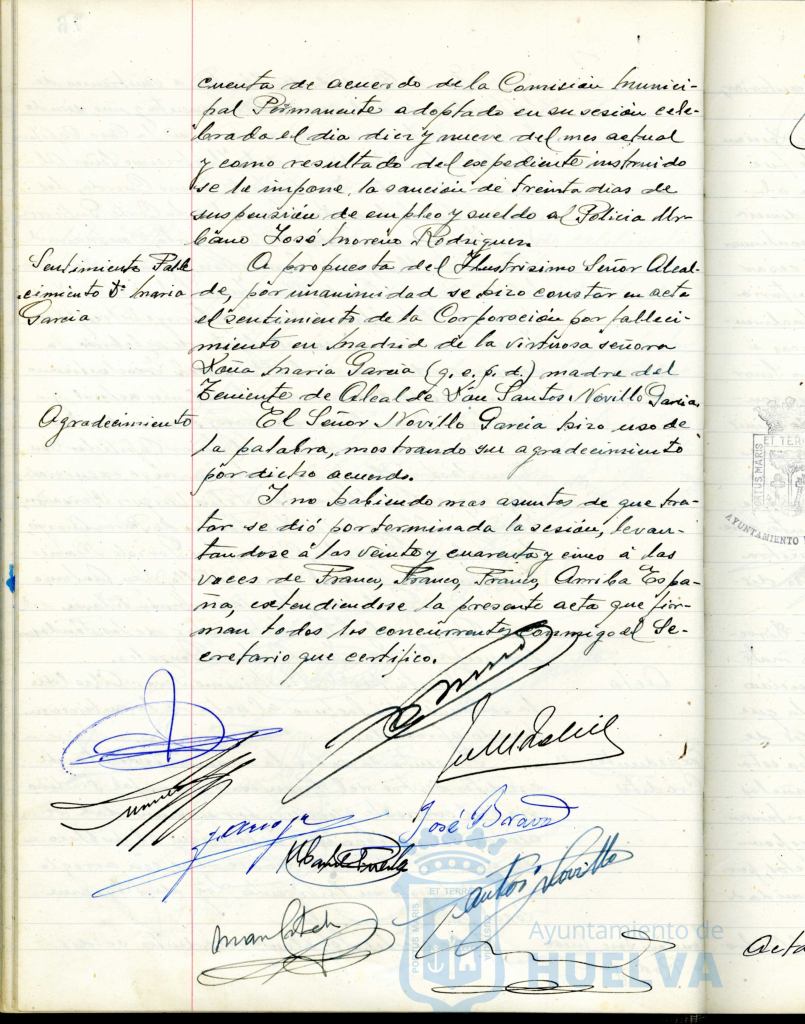 cuenta de acuerdo de la Comisión Munici-
pal Permanente adoptado en su sesión cele-
brada el dia diez y nueve del mes actual
y como resultado del expediente instruido
se le impone, la sanción de treinta dias de
suspensión de empleo y sueldo al Policia Ur-
bano José Moreno Rodriguez.
Sentimiento Falle
cimiento Dª Maria
Garcia
A propuesta del Ilustrisimo Señor Alcal-
de, por unanimidad se hizo constar en acta
el sentimiento de la Corporación por falleci-
miento en Madrid de la virtuosa señora
Doña Maria Garcia (q. e. p. d.) madre del
Teniente de Alcalde Don Santos Novillo Garcia.
Agradecimiento
El Señor Novillo Garcia hizo uso de
la palabra, mostrando su agradecimiento
por dicho acuerdo.
Y no habiendo mas asuntos de que tra-
tar se dió por terminada la sesión, levan-
tandose á las veinte y cuarenta y cinco á las
voces de Franco, Franco, Franco, Arriba Espa-
ña, extendiendose la presente acta que fir-
man todos los concurrentes conmigo el Se-
cretario que certifico.
José Bravo
Santos Novillo
PORTUS MARIS
ET TERR
AYUNTAMIENTO
Ayuntamiento de
HUELVA
Acta